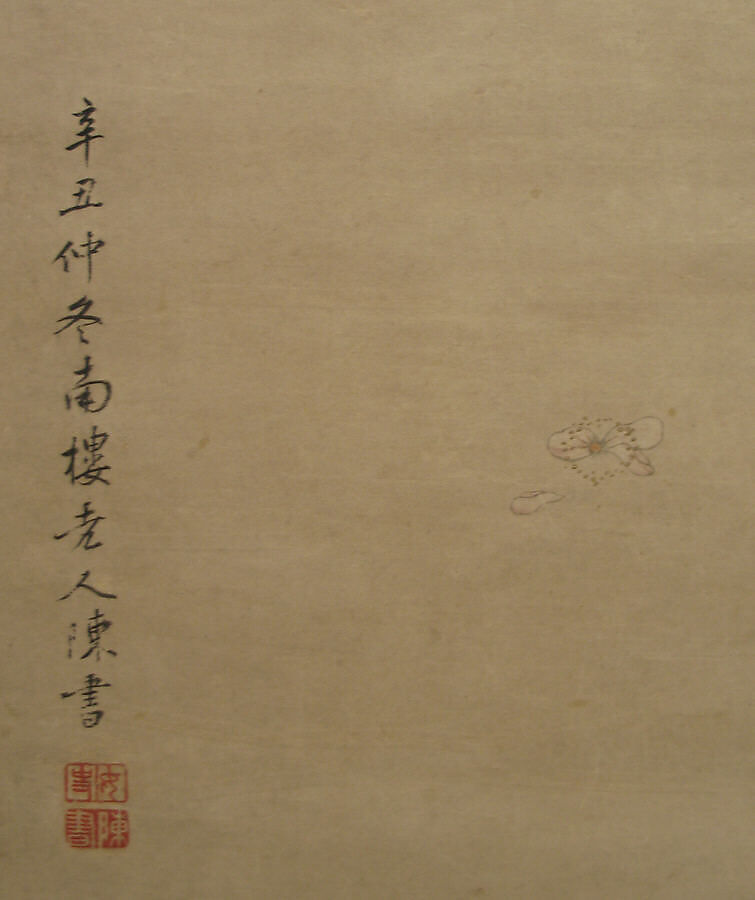 辛丑仲冬南樓老人陳書